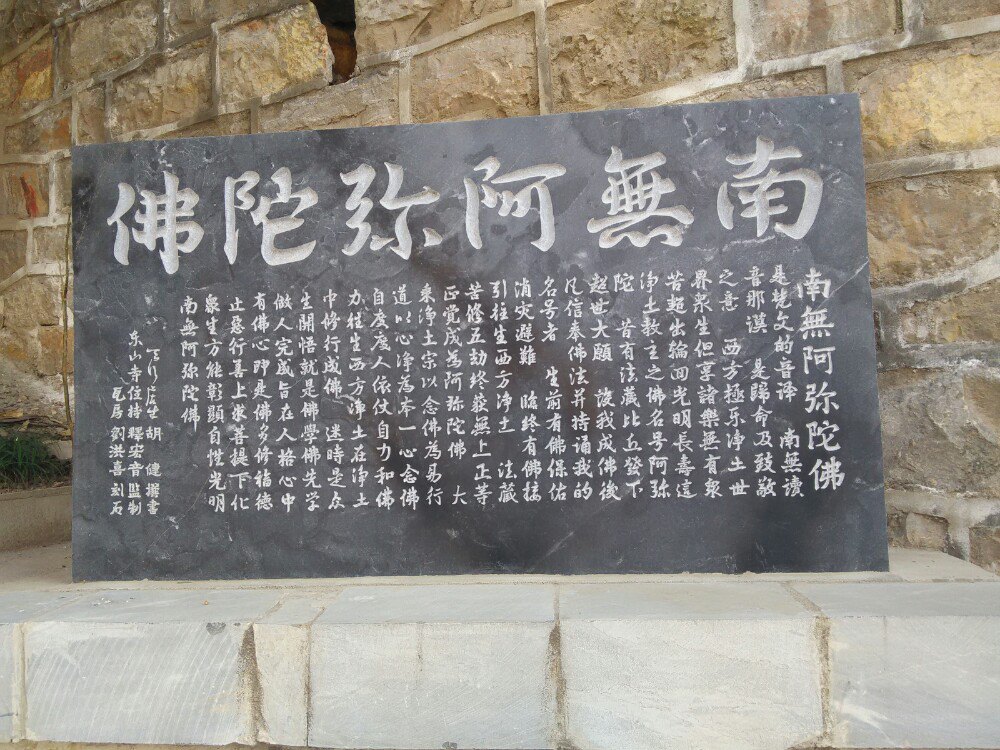 南無阿弥陀佛
南無阿弥陀佛
是梵文的音译 南無读
音那谟 是歸命及致敬
之意 西方極乐浄土世
界衆生但享諸樂無有衆
苦超出轮回光明長壽這
浄土教主之佛名号阿弥
陀 昔有法藏比丘發下
超世大願 设我成佛後
凡信奉佛法并持诵我的
名号者 生前有佛保佑
消灾避難 臨终有佛接
引往生西方浄土 法藏
苦修五劫终获無上正等
正覺成為阿弥陀佛 大
乘浄土宗以念佛為易行
道以心浄為本一心念佛
自度度人依仗自力和佛
力往生西方浄土在浄土
中修行成佛 迷時是众
生開悟就是佛學佛先学
做人完成旨在人格心中
有佛心即是佛多修福德
止惡行善上求菩提下化
衆生方能彰顯自性光明
南無阿弥陀佛
胡 健 撰書
东山寺住持 釋宏音 監制
瓦房 劉洪喜 刻石